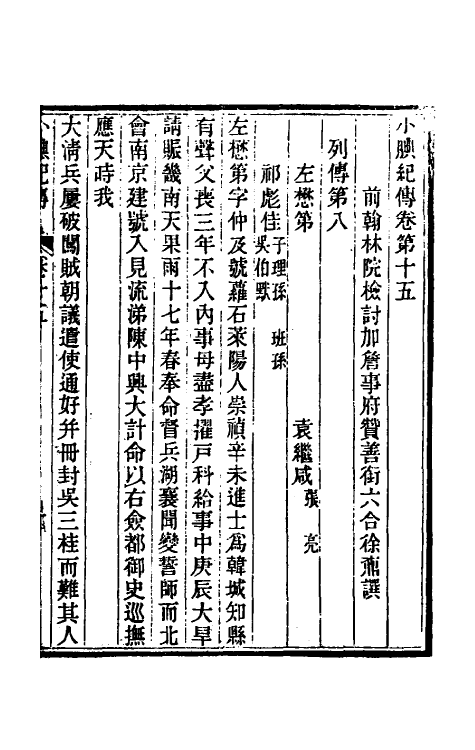 小腆紀傳卷第十五
前翰林院檢討加詹事府贊善銜六合徐鼒譔
列傳第八
左懋第 袁繼咸 張亮
祁彪佳 子理孫 班孫 吳伯默
左懋第字仲及號蘿石萊陽人崇禎辛未進士爲韓城知縣
有聲父喪三年不入內事母盡孝擢戸科給事中庚辰大旱
請賑畿南天果雨十七年春奉命督兵湖襄聞變誓師而北
會南京建號入見流涕陳中興大計命以右僉都御史巡撫
應天時我
大淸兵屢破闖賊朝議遣使通好幷冊封吳三桂而難其人